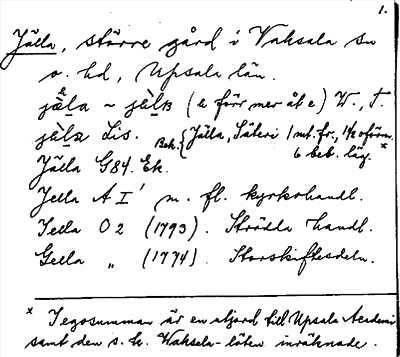 1.
Jälla, större gård i Vaksala sn
o. hd, Upsala län.
jä̀la ~ jä̀lɐ (ɐ förr mer åt e) W., T.
jäla Lis. Bok. { Jälla, Säteri 1 mt. fr., 1½ oförm.
6 beb. läg. *
Jälla G84. Ek.
Jella A I' m. fl. kyrkohandl.
Jella O2 (1793). Strödda handl.
Gella „ (1774). Storskiftesdeln.
* I egosumman är en utjord till Upsala Academi
samt den s. k. Vaksala-löten inräknade.